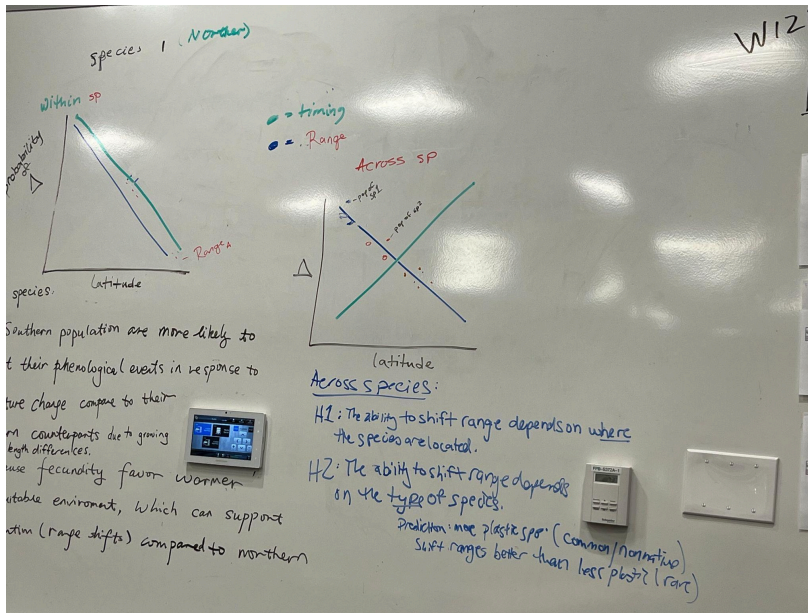 WIZ
Species 1 (Norther)
Within sp
probability
of
Δ
Range Δ
latitude
= timing
= Range
Across sp
pop of
sp1
pop of sp2
Δ
latitude
species:
Southern population are more likely to
t their phenological events in response to
ture change compare to their
rn counterparts due to growing
length differences.
use fecundity favor warmer
uitable enviroment, which can support
ntim (range shifts) compared to northern
Across species:
H1: The ability to shift range depends on where
the species are located.
H2: The ability to shift range depends
on the type of species.
Prediction: more plastic spp (common/nonnative)
shift ranges better than less plastic (rare)